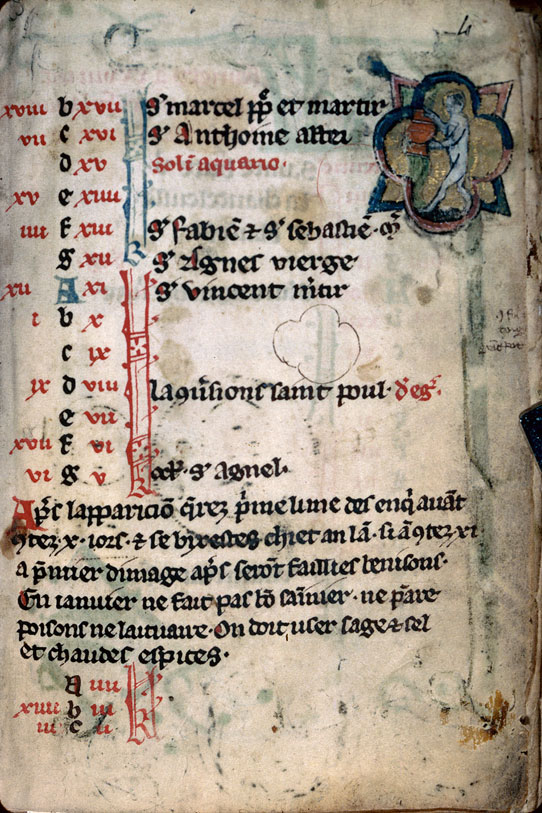 4
xviii b xvii S' marcel pp̄ et martir
vii c xvi S' Anthoine abbei
d xv Sol' ī aquario.
xv e xiiii
iiii f xiii S' fabiē & S' sebastiē.
g xii S' Agnes vierge
xii A xi S' vincent m̄tir
i b x
c ix
ix d viii la 9ũsions saint poul.
e vii
xvii f vi
vi g v oct'. S' agnel.
Ap's lappariciō q̄rez p̄me lune des enq̄ auāt
9tez .x. iors. & se byxestes chiet an lā. si ā 9tez xi
a p̄mier dimāge ap's serōt faillies benisons.
En ianuier ne fait pas bō sainier. ne p̄nre
poisons ne laituaire. On doit user sage & sel
et chaudes espices.
A iiii
xiiii b iii
iii c ii